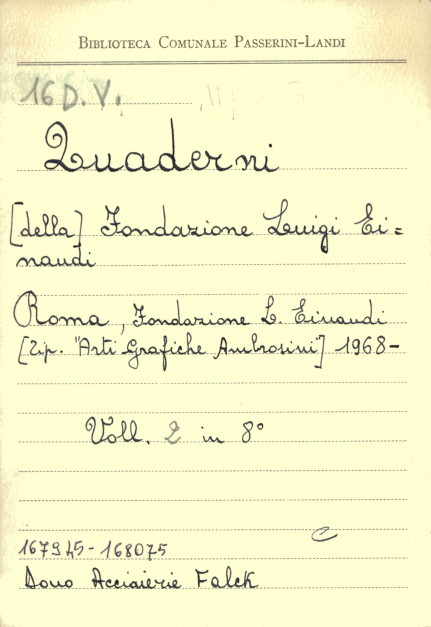 BIBLIOTECA COMUNALE PASSERINI-LANDI
16 D. V.
Quaderni
[della] Fondazione Luigi Ei=
naudi
Roma, Fondazione L. Einaudi
[Tip. "Arti Grafiche Ambrosini"] 1968-
Voll. 2 in 8°
167945-168075
Dono Acciaierie Falck